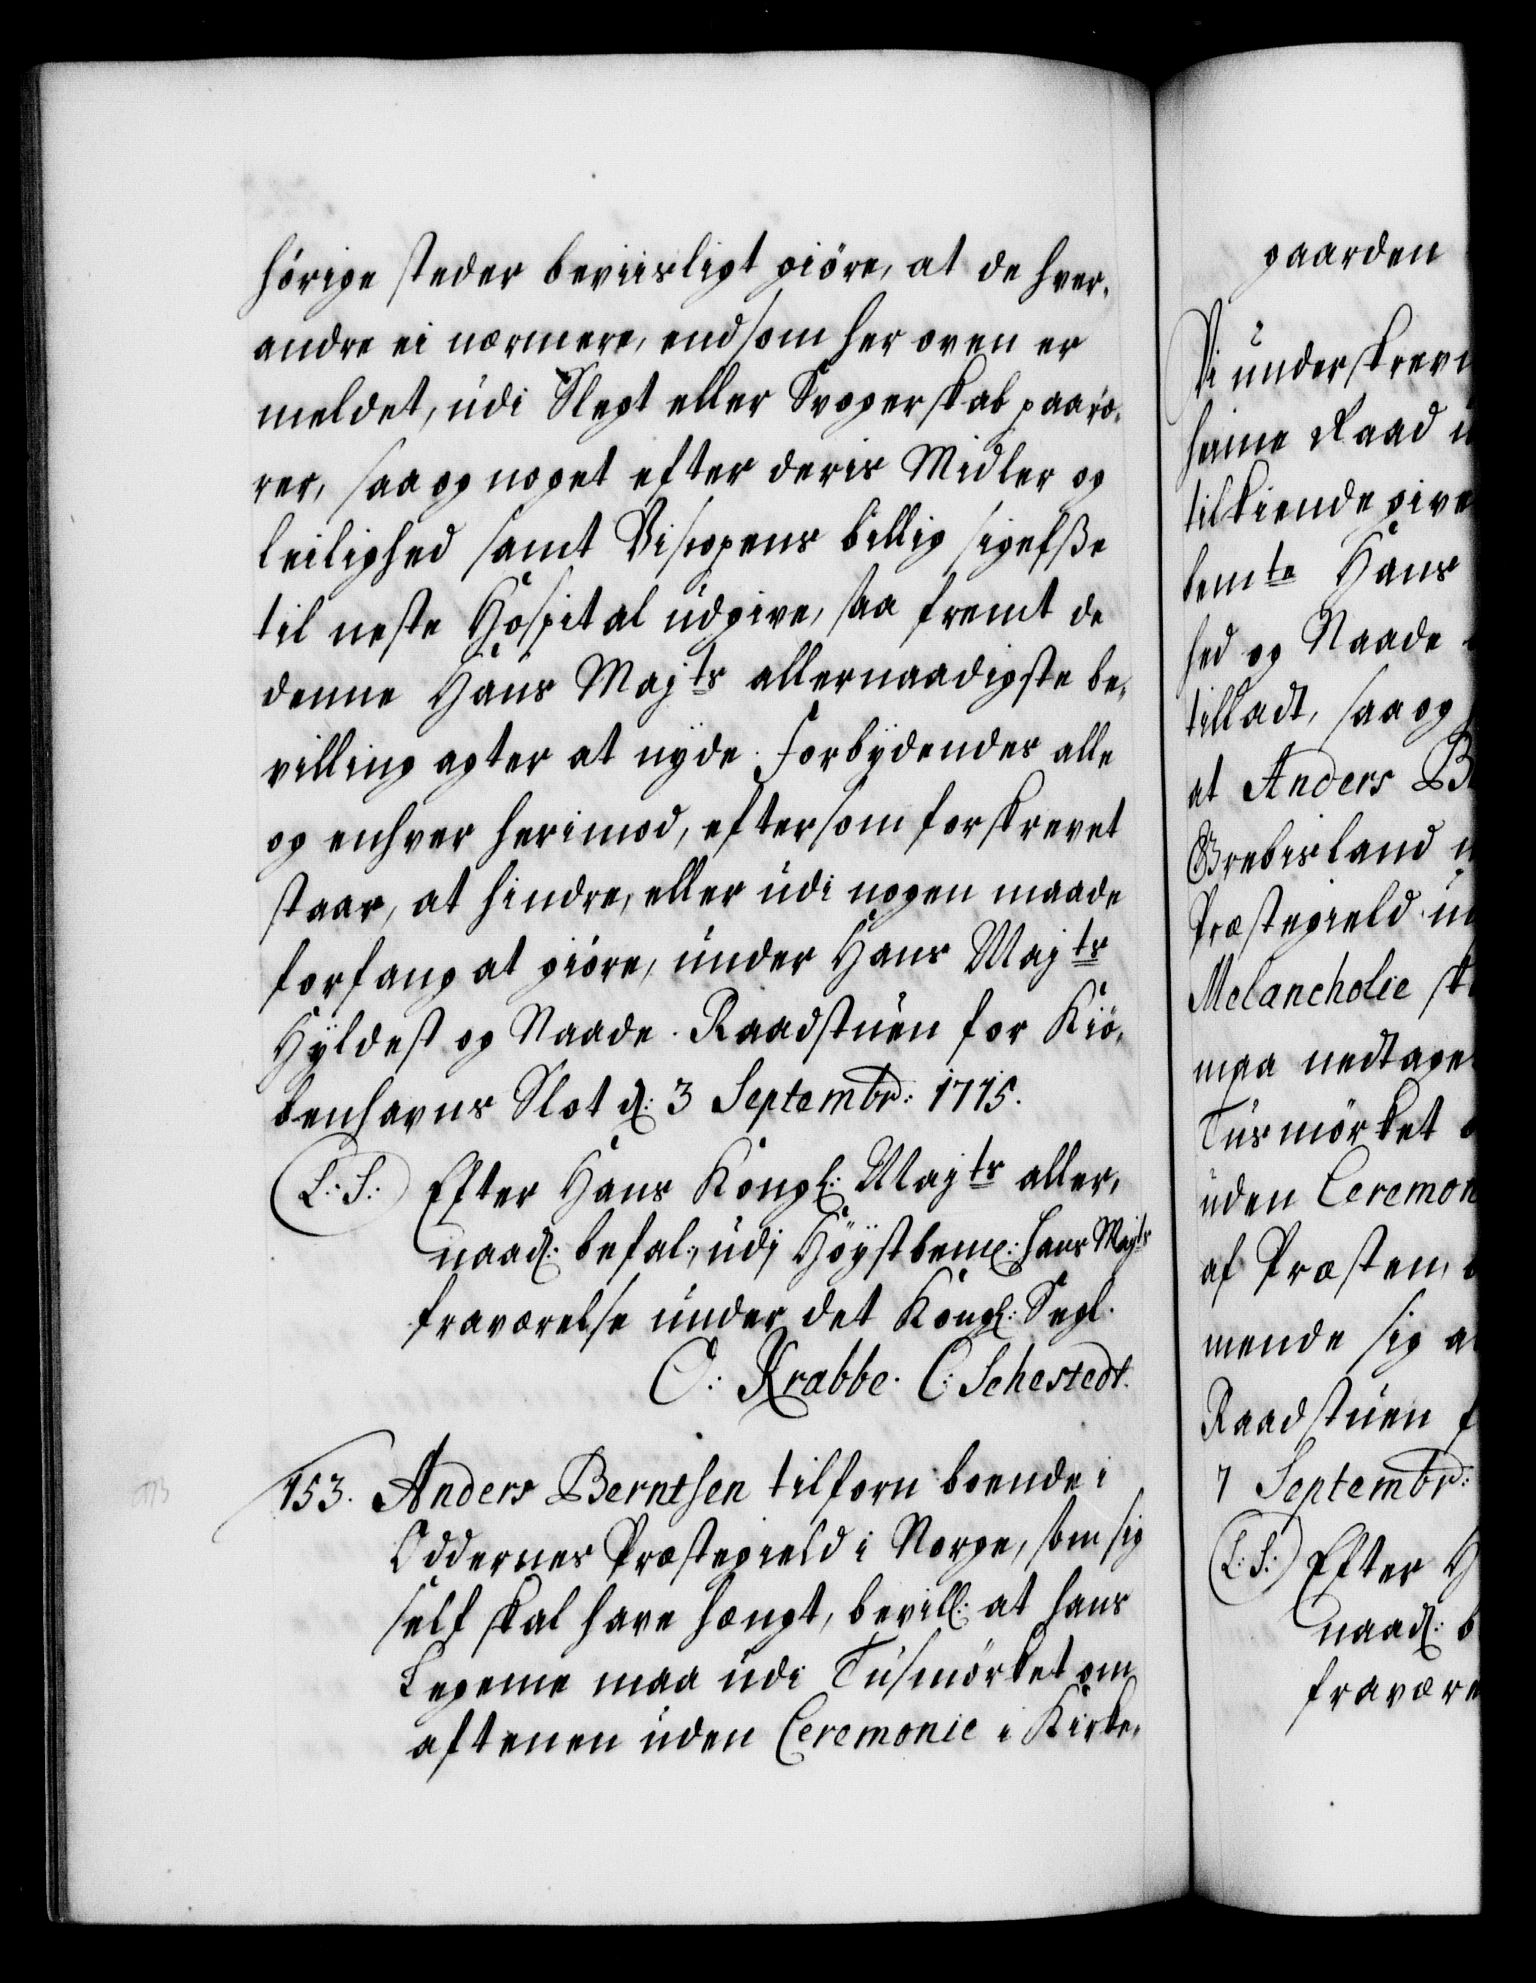 hörige steder beviisligt giöre, at de hver-
andre ei nærmere, end som her oven er
meldet, udi Slegt eller Svogerskab paarö-
rer, saa og noget efter deris Midler og
leilighed samt Biscopens billig sigelsze
til neste Hospital udgive, saa fremt de
denne Hans Majts allernaadigste be-
villing agter at nyde. Forbydendes alle
og enhver herimod, eftersom forskrevet
staar, at hindre, eller udi nogen maade
forfang at giöre, under Hans Majts
Hyldest og Naade. Raadstuen for Kiö-
benhavns Slot d: 3 Septembr: 1715.
(L: S:) Efter Hans Kongl: Majts aller-
naad: befal:, udj Höystbem: Hans Majts
fraværelse under det Kongl: Segl.
O: Krabbe. C: Schestedt.
153. Anders Berntsen tilforn boende i
Oddernes Præstegield i Norge, som sig
self skal have hængt, bevill: at hans
Legeme maa udi Tusmörket om
aftenen uden Ceremonie i Kirke-
gaarden
Vi underskrev
heime Raad u
tilkiende give
bemte Hans
hed og Naade
tilladt, saa og
at Anders B
Grebisland
Præstegield u
Melancholie sk
maa nedtage
Tusmörket
uden Ceremon
af Præsten,
mende sig a
Raadstuen f
7 Septembr:
(L: S:) Efter H
naad: b
fravære